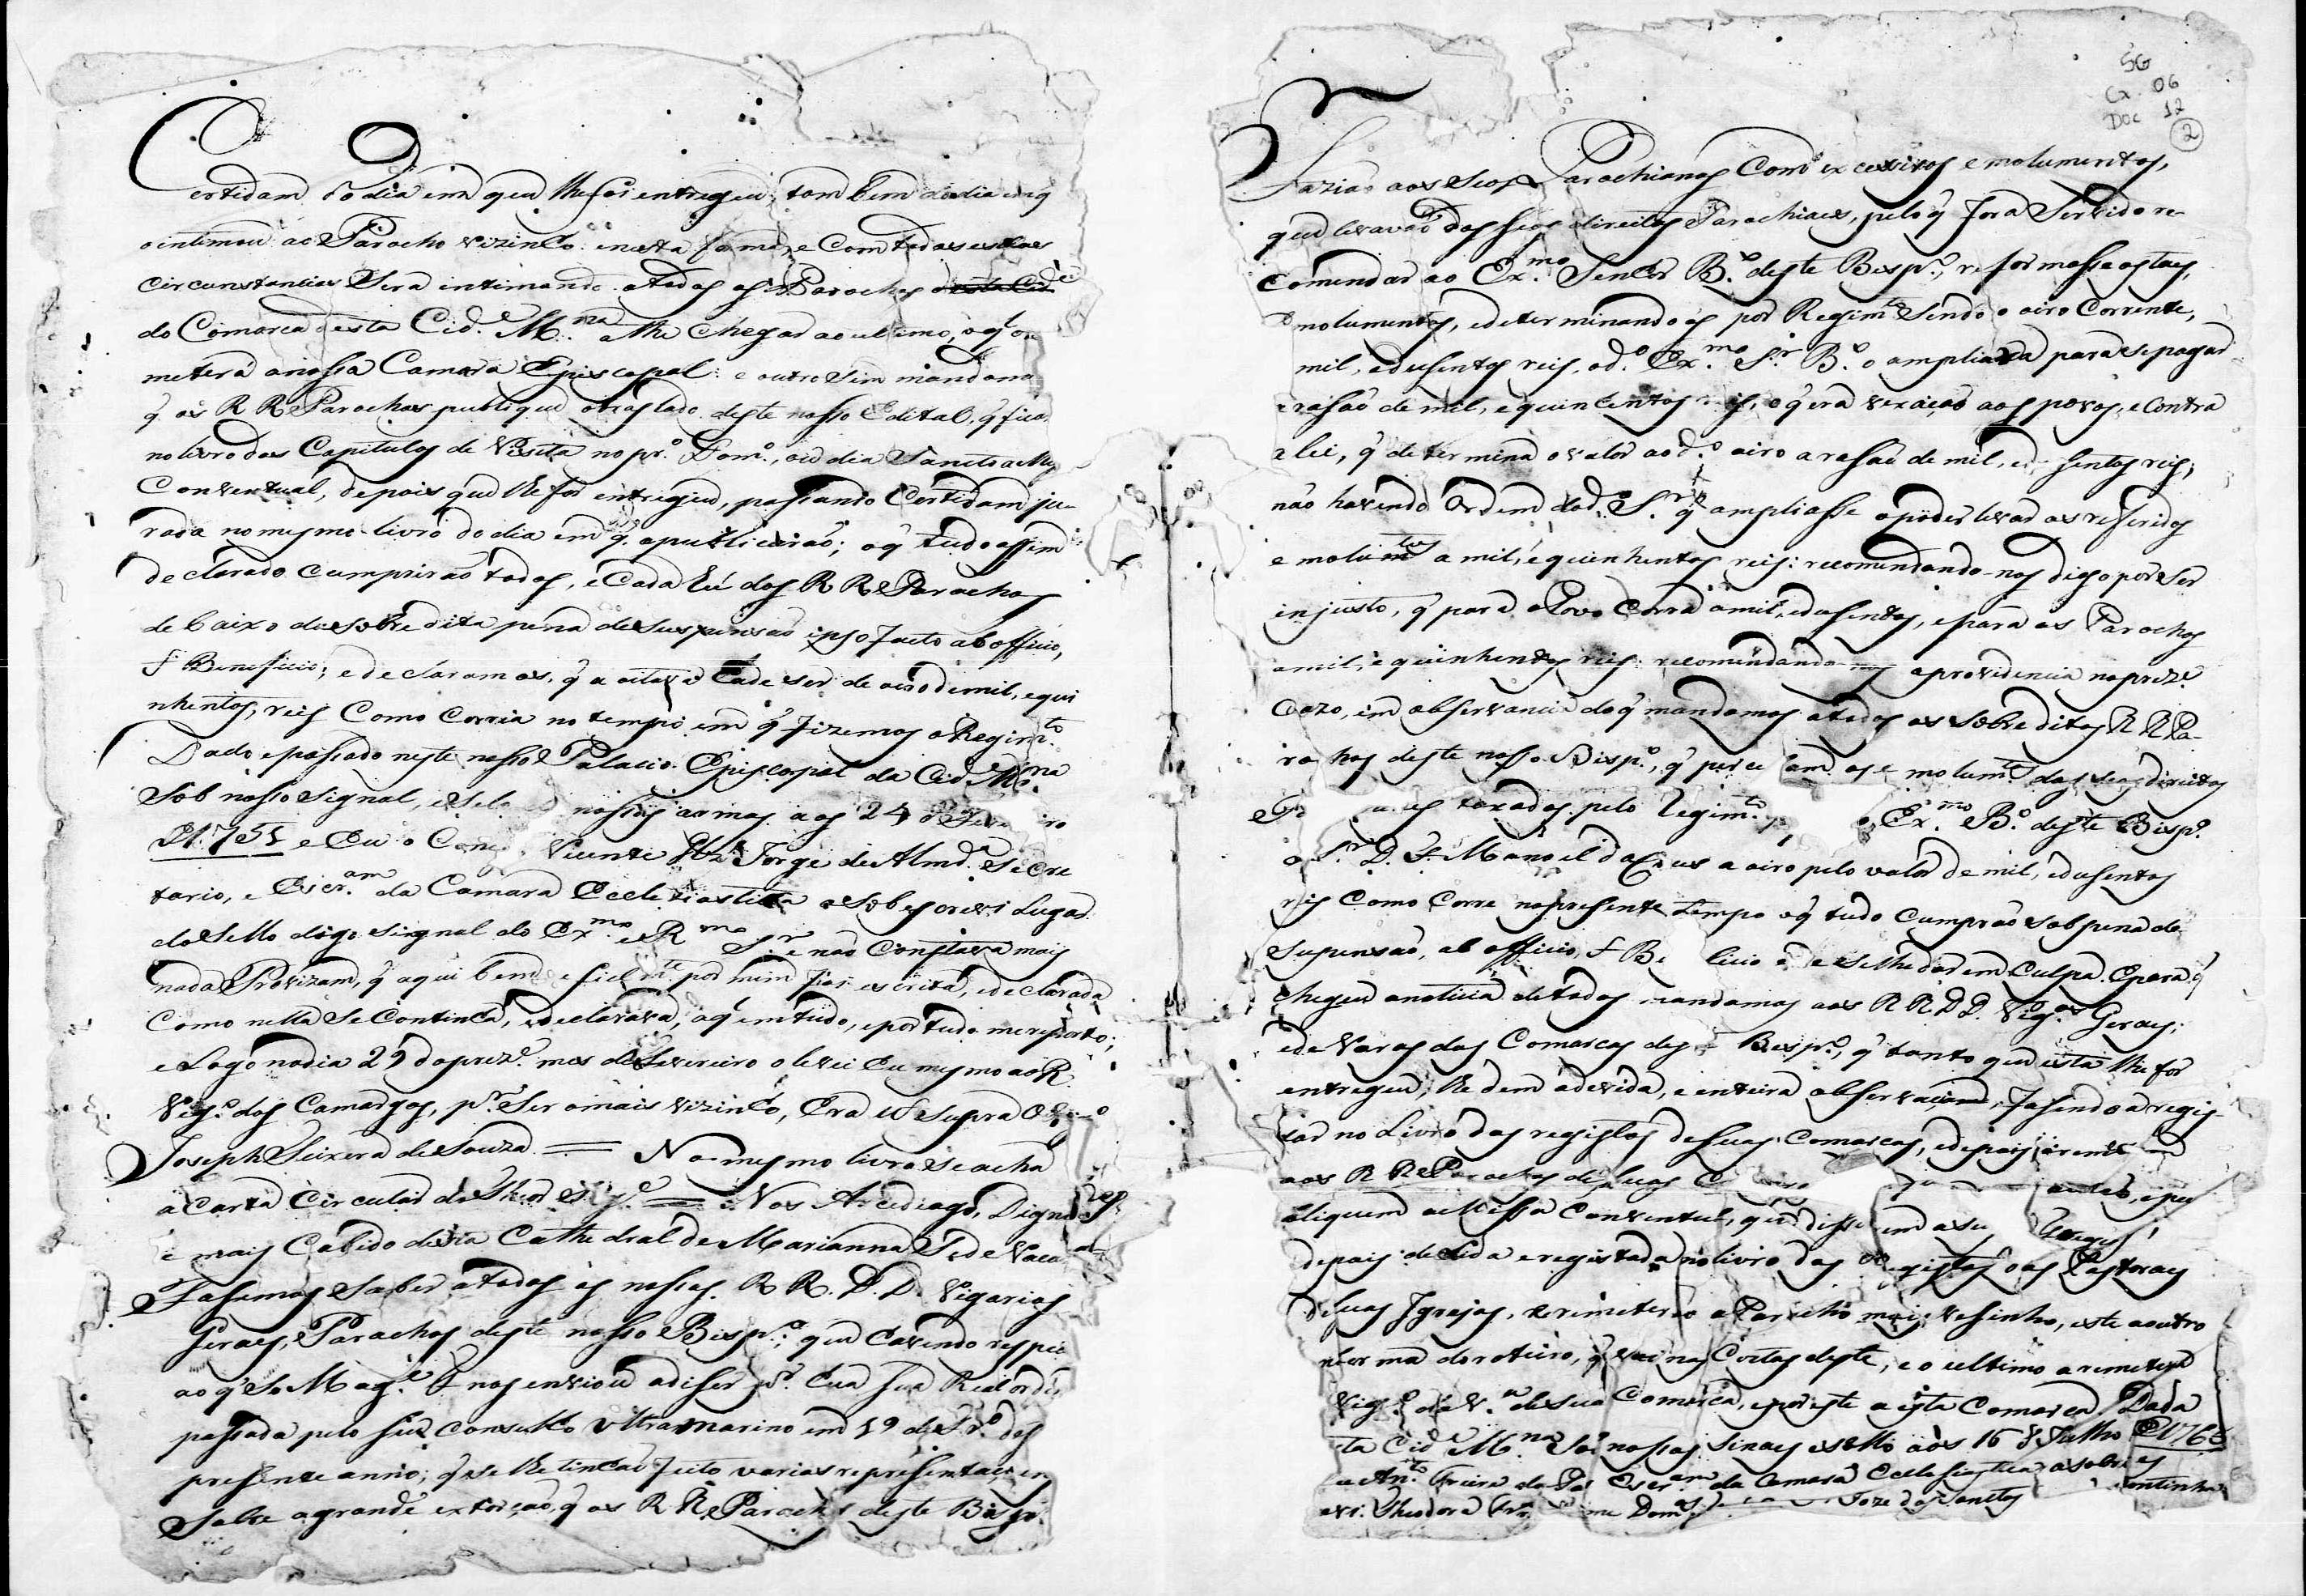 Certidam do dia em que lhe foi entregue; tam bem do dia em q̃
o intimou ao Parocho vizinho: e nesta forma, e Com todas estas
circunstancias Será intimando a todos os Parochos
da Comarca desta Cid.e M.na athe chegar ao ultimo, o ql o re
meterá a nossa Camara Episcopal: e outro sim mandamos
q̃ os R R Parochos publiquem o traslado deste nosso Edital, q̃ fica
no livro dos Capitulos de Visita no pr.o Dom.o, ou dia Sancto a Missa
Conventual, depois que lhe for entregue, passando Certidam ju-
rada no mesmo livro do dia em q̃ a publicárão; o q̃ tudo assim
declarado cumprirão todos, e Cada hũ dos R R Parochos
de baixo da sobre dita pena de suspensão ipso facto ab officio,
& Beneficio; e declaramos, q̃ a oitava hade ser de oiro de mil, e qui
nhentos, reis Como corria no tempo em q̃ fizemos o Regim.to
Dado e passado neste nosso Palacio Episcopal da Cid.e M.na
Sob nosso signal, e Sello nossas armas aos 24 de Fevereiro
de 1751 e Eu o Coneg Vicente Glz Jorge de Almd.a Secre
tario, e Escr.am da Camara Ecclesiastica o sobescrevi Lugar
do Sello digo signal do Ex.mo e R.mo Sr e não Constava mais
nada Provizam, q̃ aqui bem e fielm.te por mim foi escrita, e declarada
Como nella Se Continha, e declarava, a q̃ em tudo, e por tudo me reporto;
e Logo no dia 29 do prez.e mes de Fevereiro o levei Eu mesmo ao R.
Vig.o dos Camargos, p.r Ser o mais vizinho, Era ut Supra O
Joseph Teixera de Souza = No mesmo livro se acha
a Carta Circular do Theor Seg.e = Nos Arcediago, Dignid.es
e mais Cabido desta Cathedral de Marianna Sede Vacante
Fasemos Saber a todos os nossos R R. D. D. Vigarios
Geraes, e Parochos deste nosso Bisp.o: que havendo respei
ao q̃ S. Mag.e F nos enviou a diser por hua sua Real ordẽ
passada pelo seu Conselho ultramarino em 19 de do
presente anno; q̃ se lhe tinhão feito varias representaçoens
Sobre a grande extorção, q̃ os R R Parochos deste Bisp.o
SG
Cx. 06
Doc 12
2
Faziaõ aos Seos Parochianos Com os excessivos emolumentos,
que levavão dos seos direitos Parochiaes, pelo q̃ fora Servido re-
comendar ao Ex.mo Senhor B.o deste Bisp.o, reformasse os taes,
emolumentos, e determinando os por Regim.to Sendo o oiro Corrente,
mil, e dusentos reis, o d.o Ex.mo Sr. B.o o ampliára para se pagar
a rasão de mil, e quinhentos reis, o q̃ era vexação aos povos, e Contra
a lei, q̃ determina o valor ao d.o oiro a rasão de mil, e dusentos reis,
não havendo Ordem do d.o S.r q̃ ampliasse a poder levar os referidos
emolum.tos a mil, e quinhentos reis: recomendando-nos digo por Ser
injusto, q̃ para o Povo Corra a mil, e dusentos, e para os Parochos
a mil, e quinhentos reis: recomendando-nos a providencia no prez.e
Cazo, em observancia do q̃ mandamos a todos os sobre ditos R R Pa-
rochos deste nosso Bisp.o, q̃ percebam os emolum.tos dos seos direitos
taxados pelo Regim.to Ex.mo B.o deste Bisp.o
o S.r D. Fr. Manoel da Crus a oiro pelo valor de mil, e dusentos
reis Como Corre no presente tempo o q̃ tudo Cumprão sob pena de
Supensão, ab officio, & Beneficio e se lhe dar em Culpa. E para q̃
chegue a noticia de todos mandamos aos R R D D. Vig.os Geraes;
e de Varas das Comarcas deste Bisp.o, q̃ tanto que esta lhe for
entregue, lhe dem a devida, e inteira observancia, Fasendo a regis-
tar no Livro dos registos de suas Comarcas, e depois a remeterão
aos R R Parochos de suas
bliquem a Missa Conventul, que disserem a seus Fregueses,
depois de Lida e registada no livro dos Registos das Pastoraes
de suas Igrejas, a remeterão a Parocho mais vesinho, este a outro
na forma do roteiro, q̃ vai nas Costas deste; e o ultimo a remeterá
Vig.o da V.a de sua Comarca, e por este a esta Comarca. Dada
nesta Cid.e M.na Sob nossos Sinaes e sello aos 16 de Julho de 1765
e Ant.o Freire da Pas Escr.am da Camara Ecclesiastica a sobes
crevi. Theodoro Frr. me Dom.os Joze dos Santos Continha